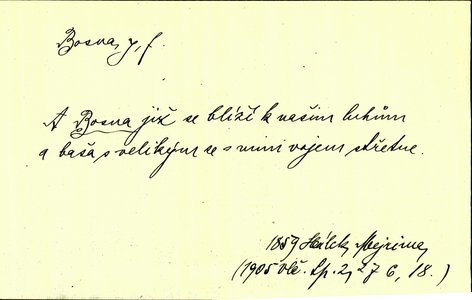 Bosna, f.
A Bosna již se blíží k našim luhům
a baša s velikým se s nimi vojem střetne.
1859 Hálek, Mejrima
(1905 Vlč. Sp. 2, 276, 18.)